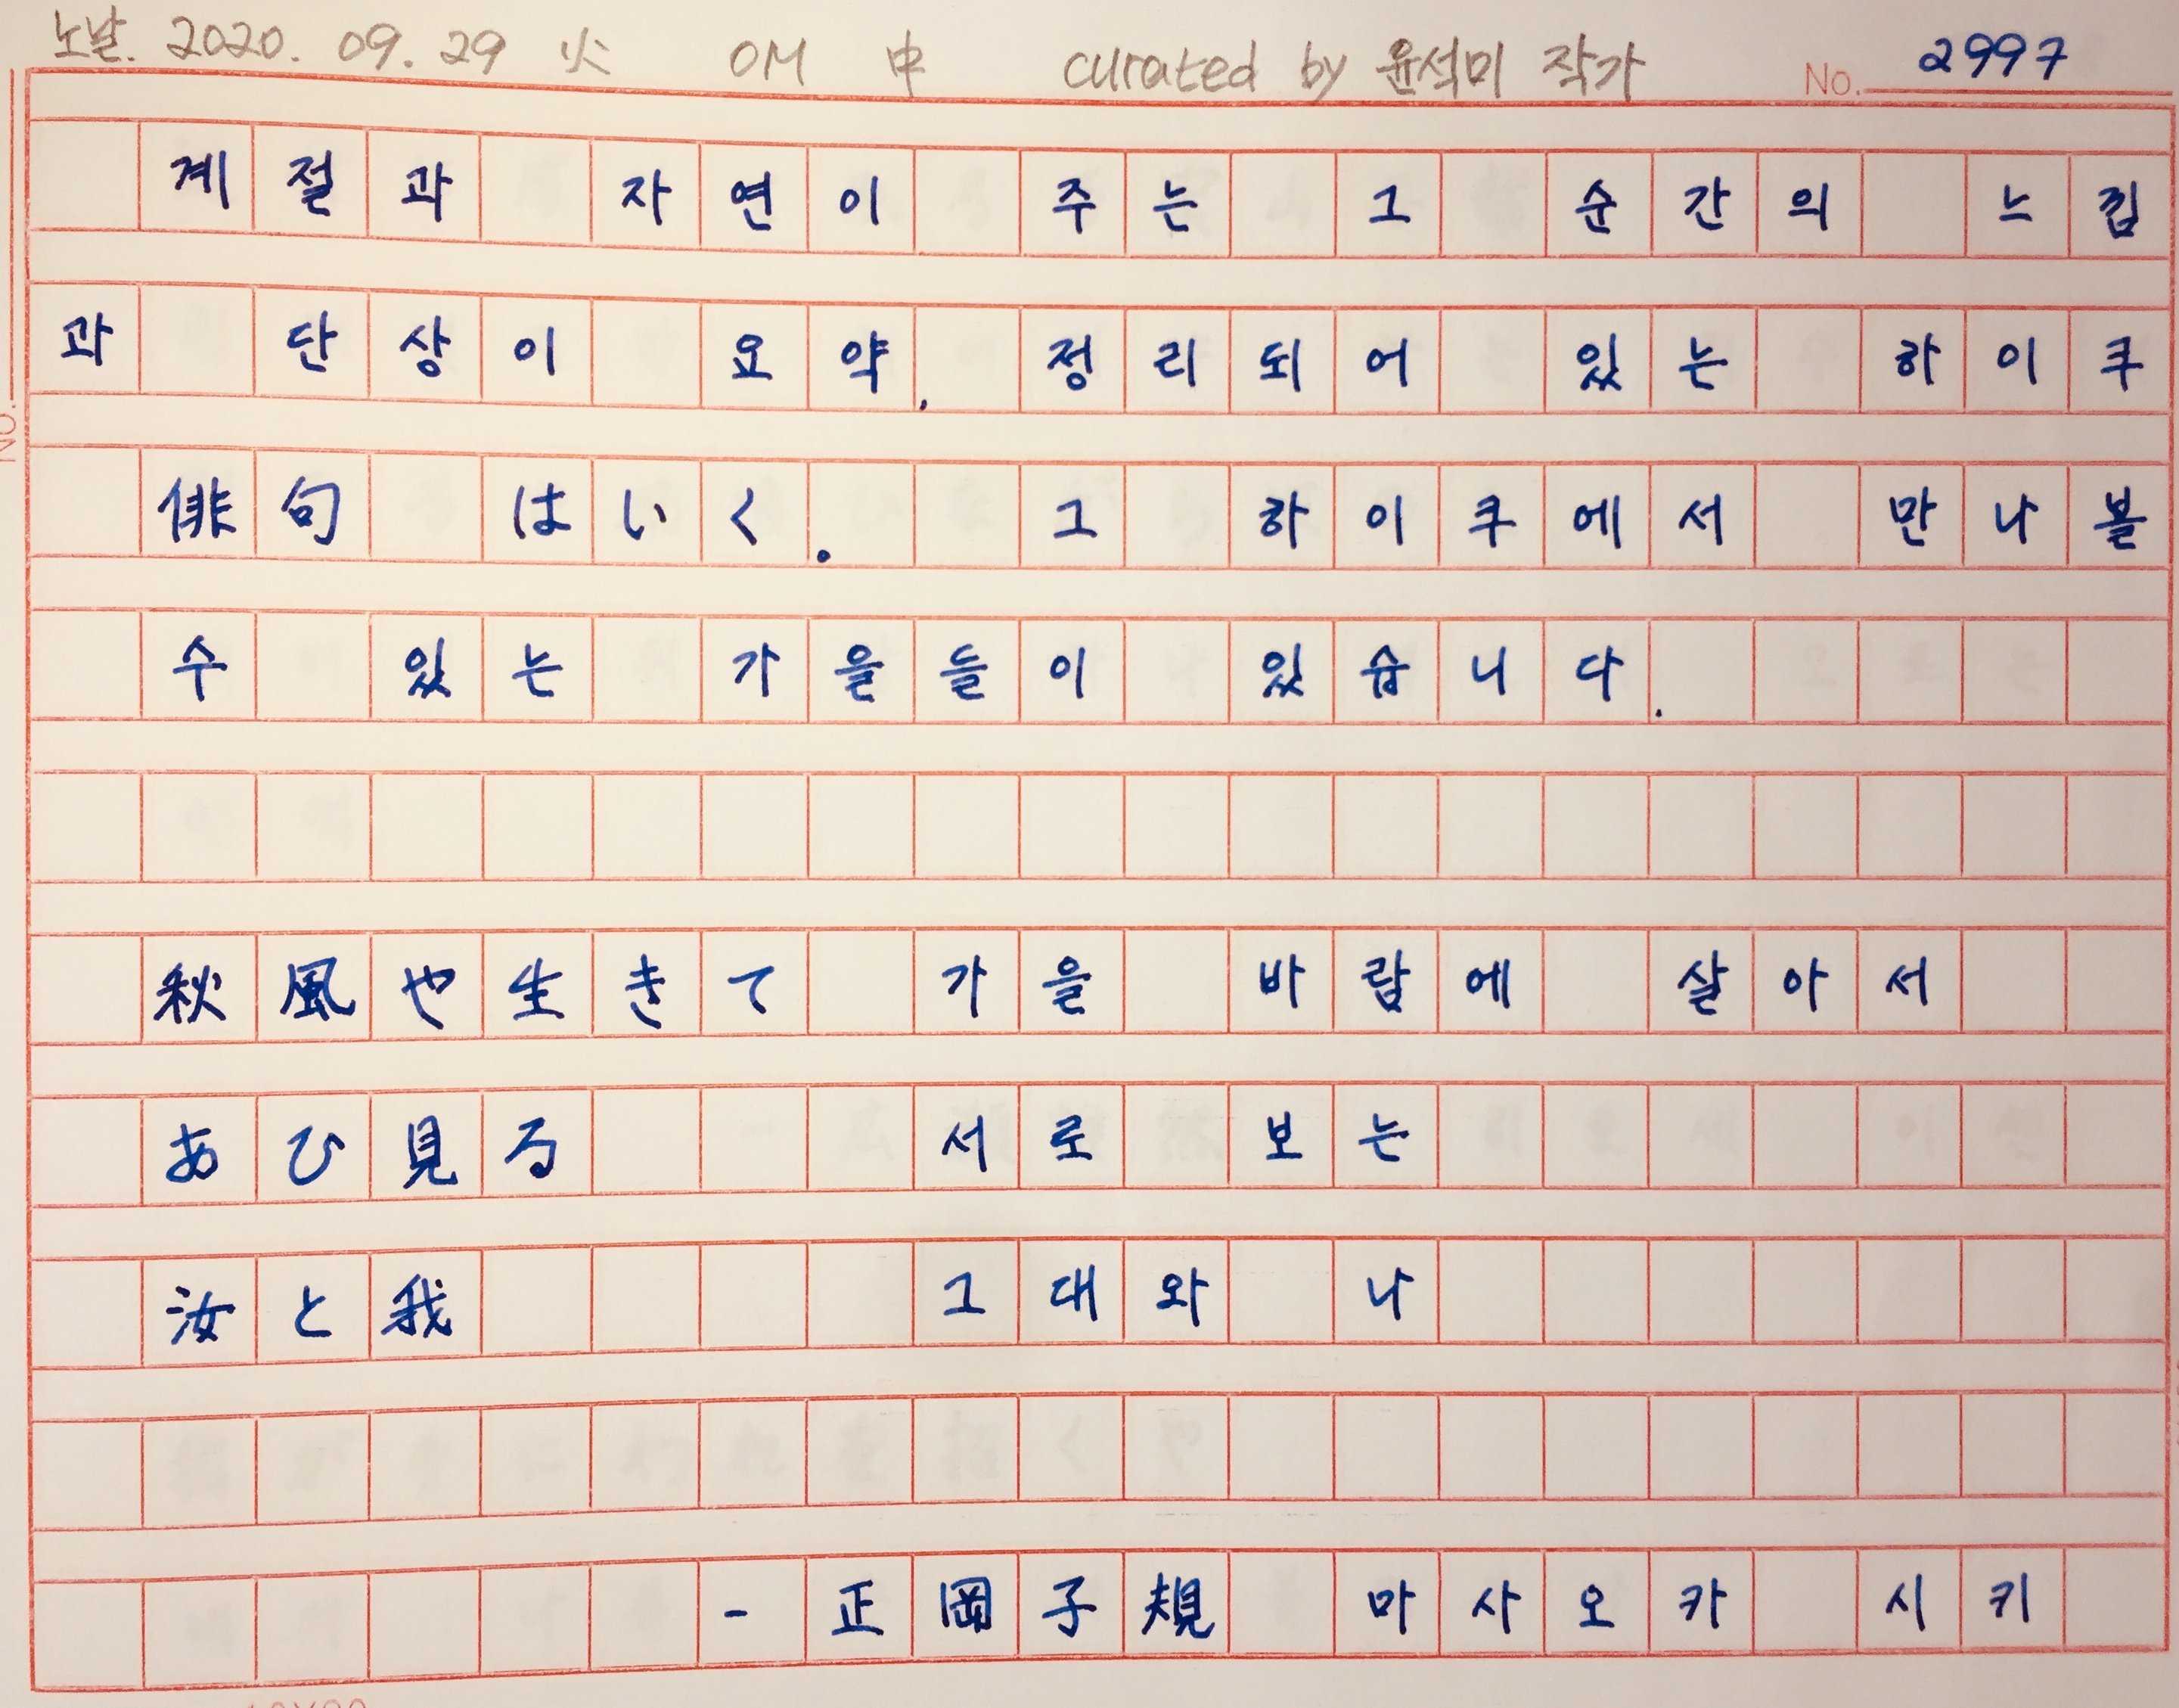 노날. 2020. 09. 29 火 OM 申 curated by 윤석미 작가 No. 2997
계절과 자연이 주는 그 순간의 느낌
과 단상이 요약. 정리되어 있는 하이쿠
俳句 はいく. 그 하이쿠에서 만나볼
수 있는 가을들이 있습니다.
秋風や生きて 가을 바람에 살아서
あひ見る 서로 보는
汝と我 그대와 나
- 正岡子規 마사오카 시키
No.